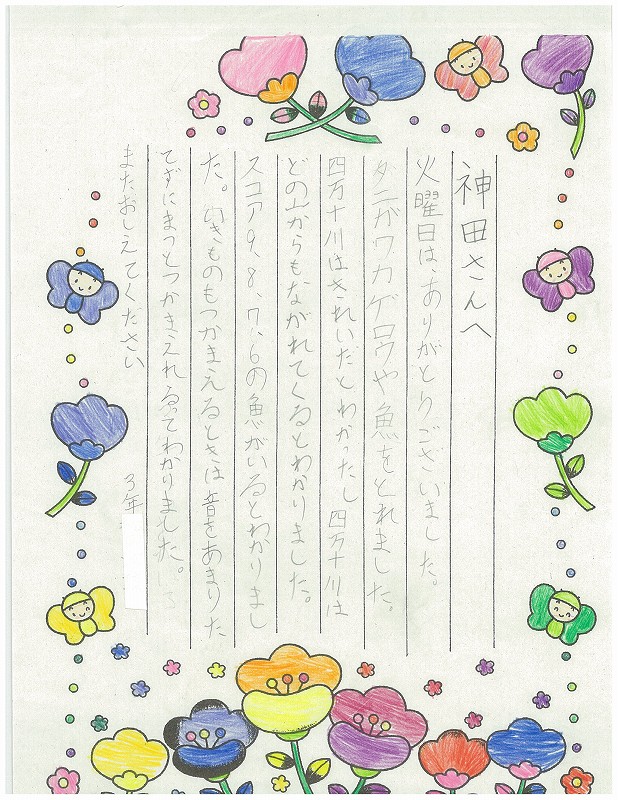 神田さんへ
火曜日は、ありがとうございました。
ダニがワカゲロウや魚をとれました。
四万十川はきれいだとわかったし四万十川は
どの山からもながれてくるとわかりました。
スコア9、8、7、6の魚がいるとわかりまし
た。いきものもつかまえるときは音をあまりた
てずにまつとつかまえれるってわかりました。
またおしえてください
3年